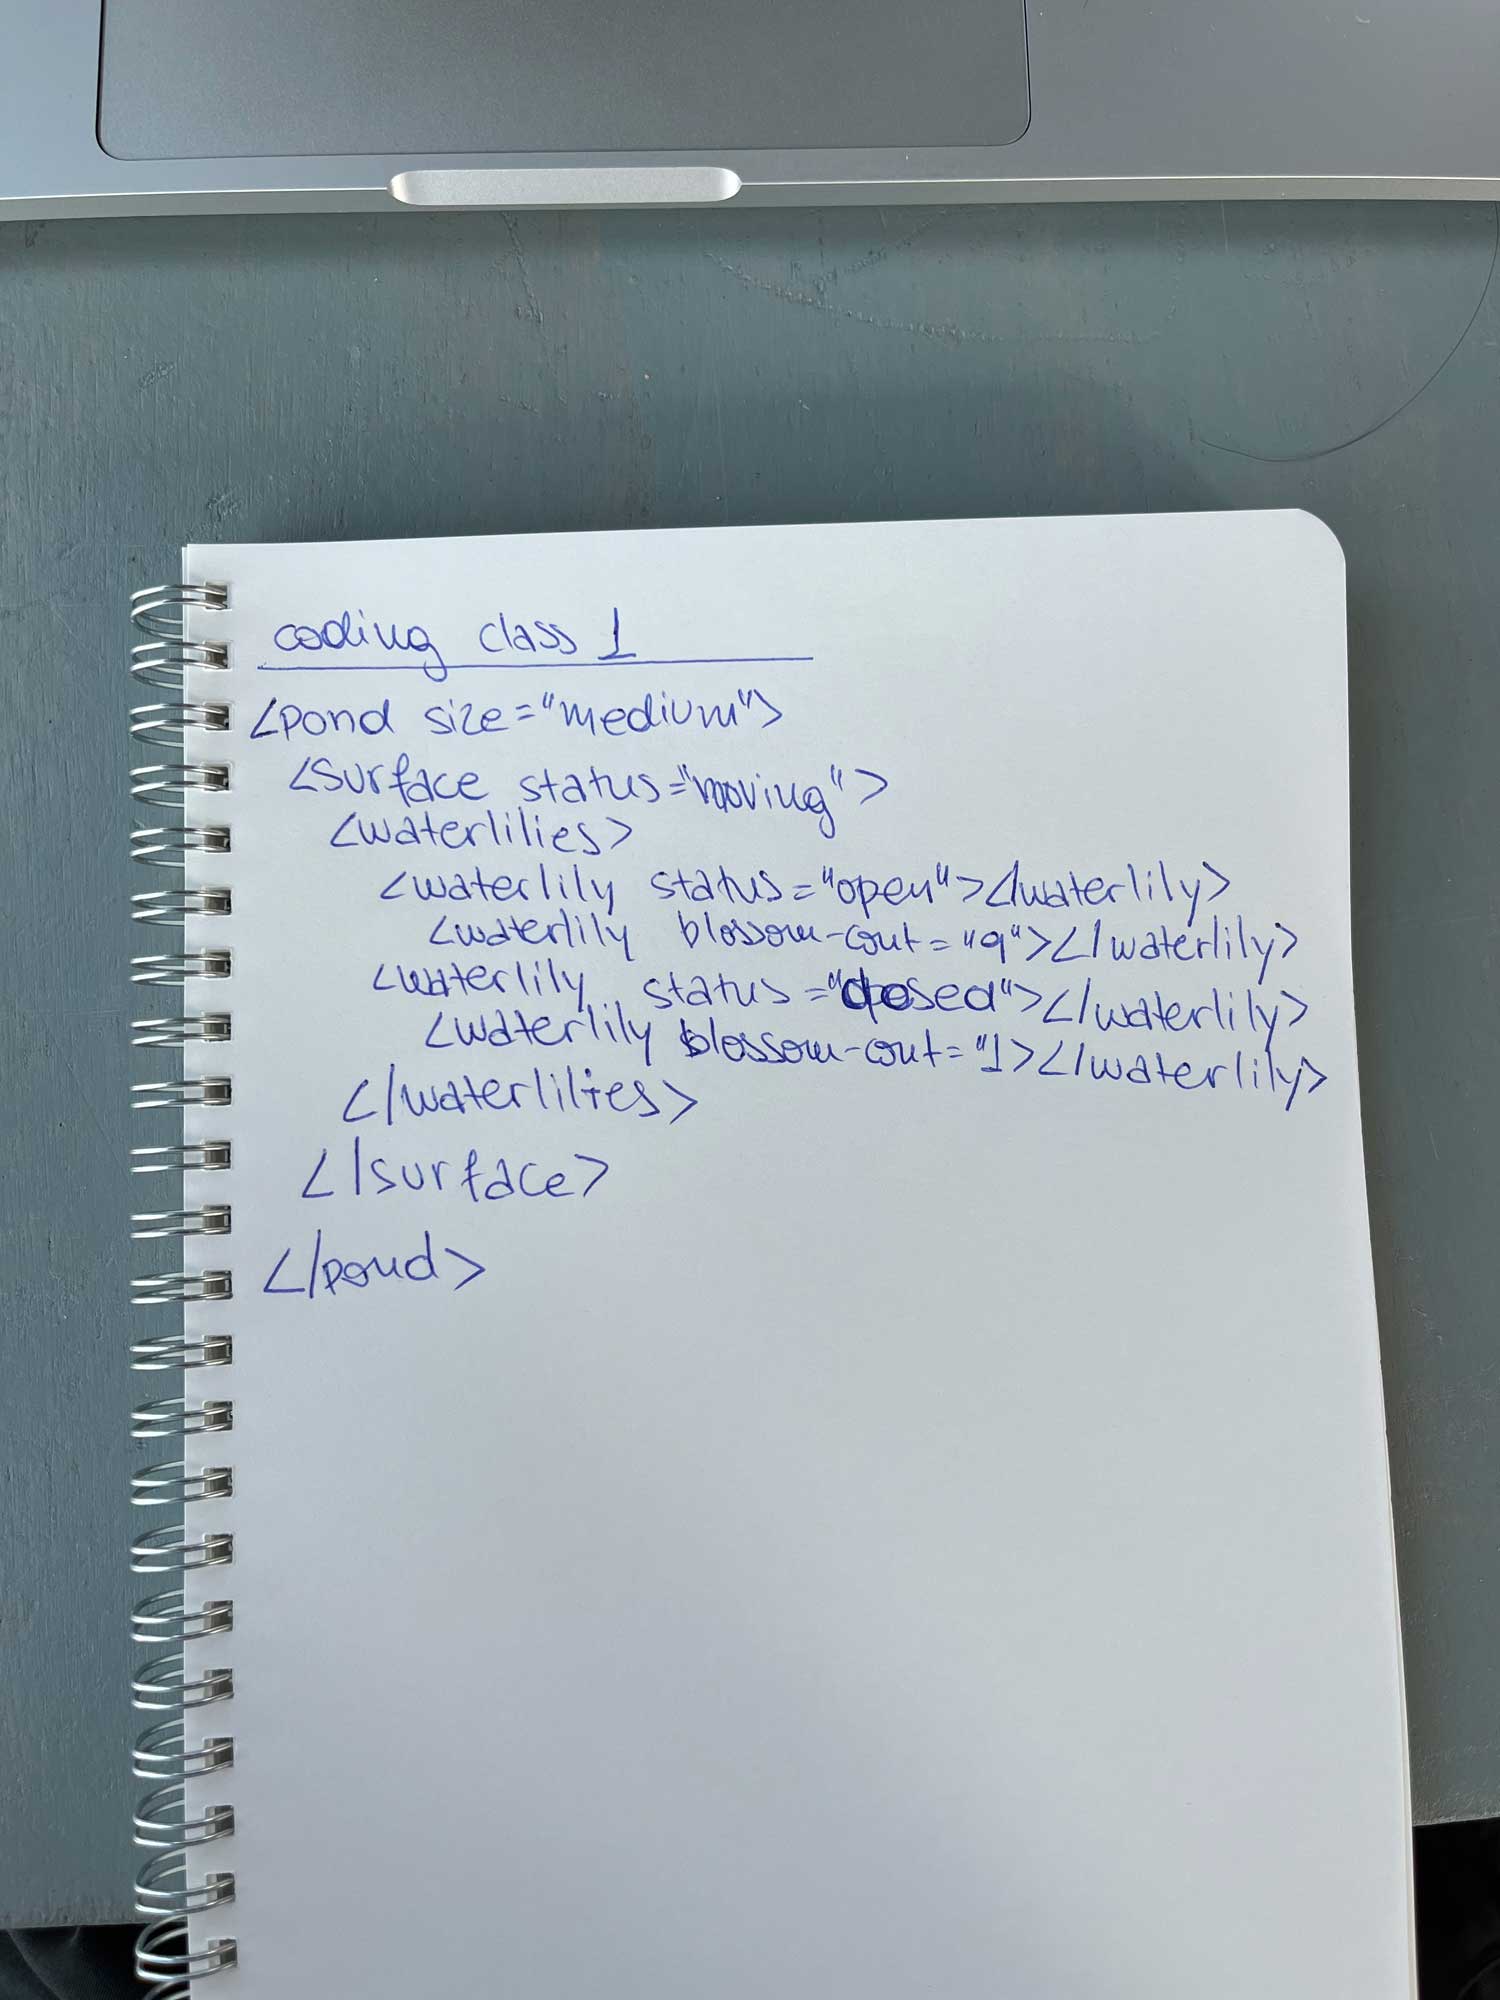 coding class 1
<pond size="medium">
<surface status="moving">
<waterlilies>
<waterlily status="open"></waterlily>
<waterlily blossom-cout="9"></waterlily>
<waterlily status="closed"></waterlily>
<waterlily blossom-cout="1></waterlily>
</waterlilies>
</surface>
</pond>